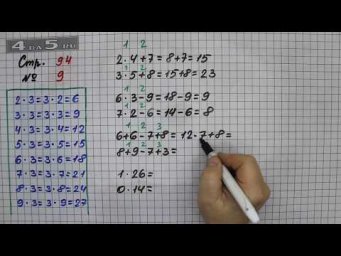 4 на 5.ru
Стр. 94
№ 9
2·3=3·2=6
3·3=3·3=9
4·3=3·4=12
5·3=3·5=15
6·3=3·6=18
7·3=3·7=21
8·3=3·8=24
9·3=3·9=27
1 2
2·4+7=8+7=15
1 2
3·5+8=15+8=23
1 2
6·3-9=18-9=9
1 2
7·2-6=14-6=8
1 2 3
6+6-7+8=12-7+8=
1 2 3
8+9-7+3=
1·26=
0·14=